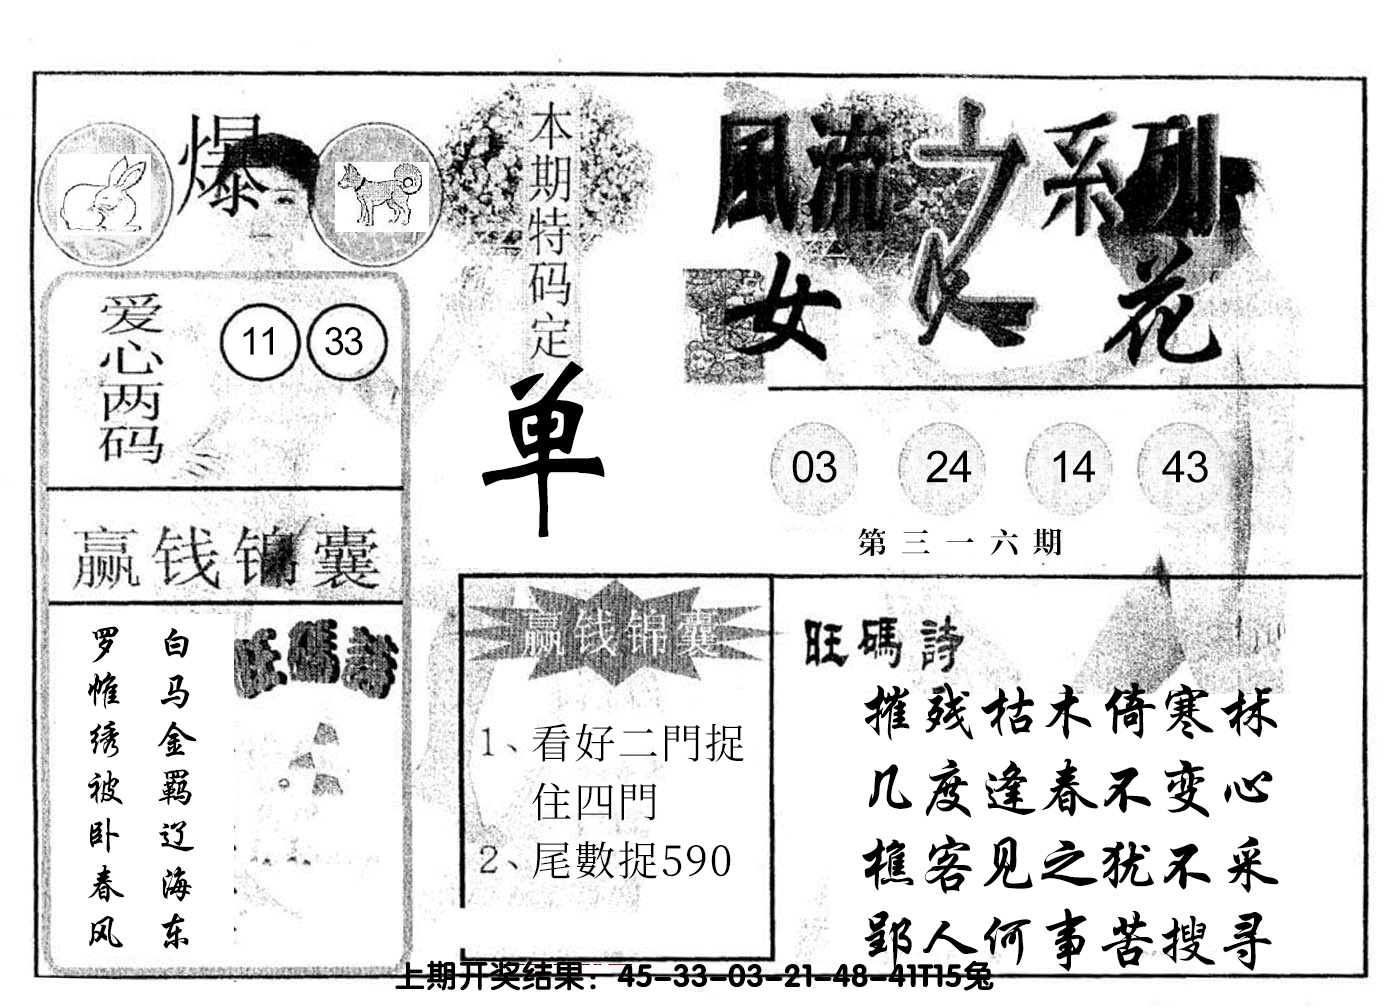 爆
本期特码定
单
風流之系列
女人花
爱心两码
11 33
03 24 14 43
第三一六期
赢钱锦囊
白马金羁辽海东
罗帷绣被卧春风
旺碼詩
赢钱锦囊
1、看好二門捉
住四門
2、尾數捉590
旺碼詩
摧残枯木倚寒林
几度逢春不变心
樵客见之犹不采
郢人何事苦搜寻
上期开奖结果：45-33-03-21-48-41T15兔